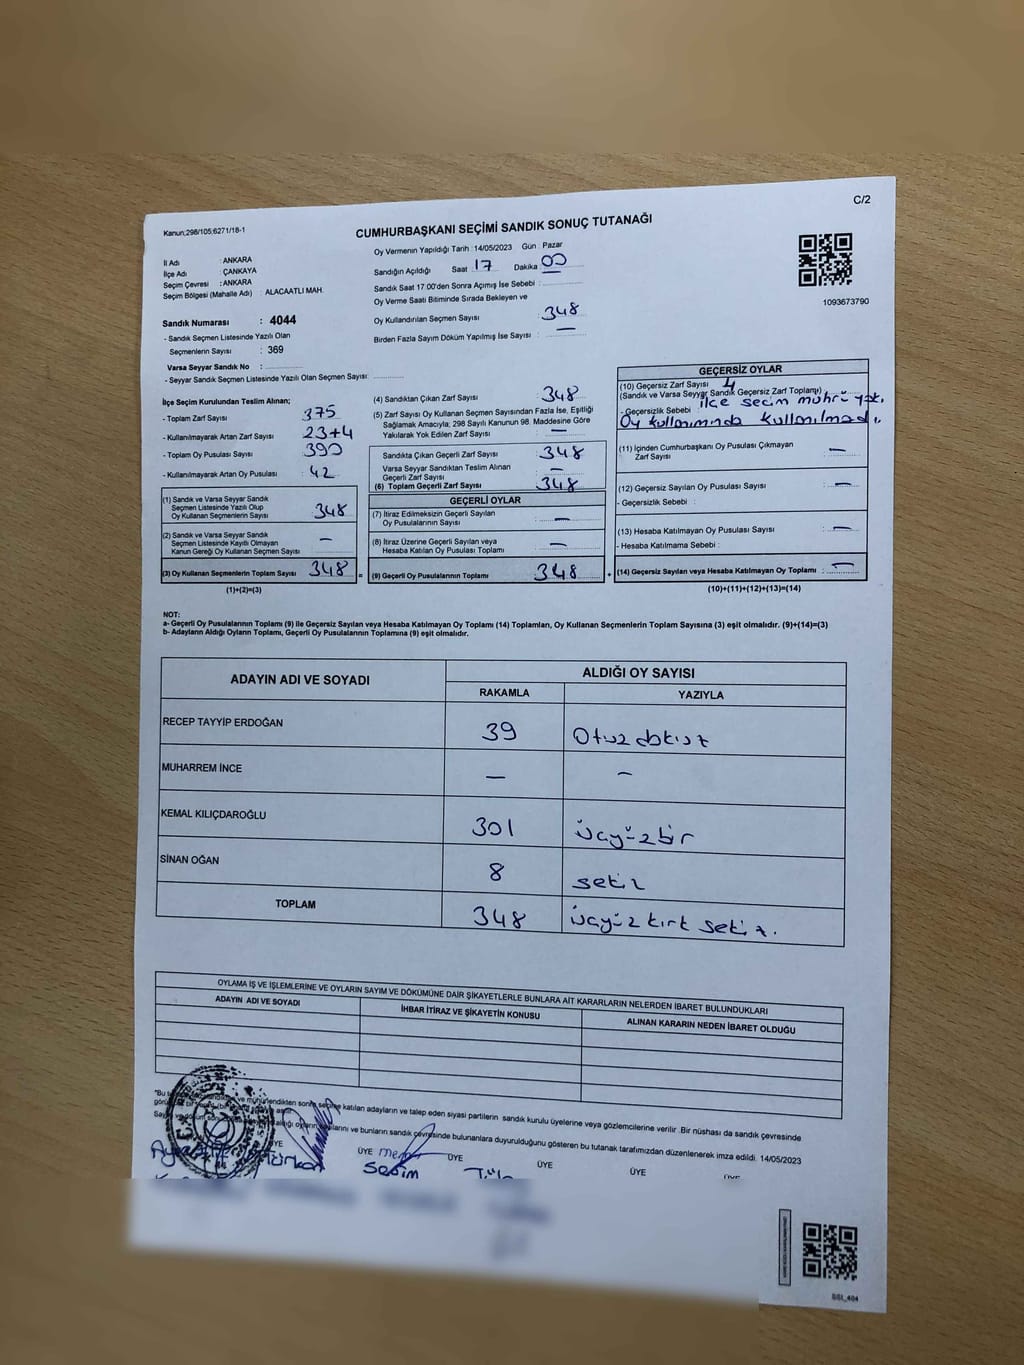 C/2
Kanun;298/105;6271/18-1
CUMHURBAŞKANI SEÇİMİ SANDIK SONUÇ TUTANAĞI
İl Adı : ANKARA
İlçe Adı : ÇANKAYA
Seçim Çevresi : ANKARA
Seçim Bölgesi (Mahalle Adı) : ALACAATLI MAH.
Oy Vermenin Yapıldığı Tarih :14/05/2023 Gün : Pazar
Sandığın Açıldığı Saat 17 Dakika 00
Sandık Saat 17.00'den Sonra Açımış İse Sebebi :
Oy Verme Saati Bitiminde Sırada Bekleyen ve
Oy Kullandırılan Seçmen Sayısı : 348
Birden Fazla Sayım Döküm Yapılmış İse Sayısı : —
1093673790
Sandık Numarası : 4044
- Sandık Seçmen Listesinde Yazılı Olan
Seçmenlerin Sayısı : 369
Varsa Seyyar Sandık No :
- Seyyar Sandık Seçmen Listesinde Yazılı Olan Seçmen Sayısı:
İlçe Seçim Kurulundan Teslim Alınan;
- Toplam Zarf Sayısı : 375
- Kullanılmayarak Artan Zarf Sayısı : 23+4
- Toplam Oy Pusulası Sayısı : 390
- Kullanılmayarak Artan Oy Pusulası : 42
(1) Sandık ve Varsa Seyyar Sandık
Seçmen Listesinde Yazılı Olup
Oy Kullanan Seçmenlerin Sayısı : 348
(2) Sandık ve Varsa Seyyar Sandık
Seçmen Listesinde Kayıtlı Olmayan
Kanun Gereği Oy Kullanan Seçmen Sayısı —
(3) Oy Kullanan Seçmenlerin Toplam Sayısı 348 =
(1)+(2)=(3)
(4) Sandıktan Çıkan Zarf Sayısı : 348
(5) Zarf Sayısı Oy Kullanan Seçmen Sayısından Fazla İse, Eşitliği
Sağlamak Amacıyla; 298 Sayılı Kanunun 98. Maddesine Göre
Yakılarak Yok Edilen Zarf Sayısı : —
Sandıkta Çıkan Geçerli Zarf Sayısı : 348
Varsa Seyyar Sandıktan Teslim Alınan
Geçerli Zarf Sayısı : —
(6) Toplam Geçerli Zarf Sayısı : 348
GEÇERLİ OYLAR
(7) İtiraz Edilmeksizin Geçerli Sayılan
Oy Pusulalarının Sayısı : —
(8) İtiraz Üzerine Geçerli Sayılan veya
Hesaba Katılan Oy Pusulası Toplamı : —
(9) Geçerli Oy Pusulalarının Toplamı : 348 +
GEÇERSİZ OYLAR
(10) Geçersiz Zarf Sayısı : 4
(Sandık ve Varsa Seyyar Sandık Geçersiz Zarf Toplamı)
- Geçersizlik Sebebi : ilçe seçim mührü yok.
Oy kullanımında kullanılmadı.
(11) İçinden Cumhurbaşkanı Oy Pusulası Çıkmayan
Zarf Sayısı : —
(12) Geçersiz Sayılan Oy Pusulası Sayısı : —
- Geçersizlik Sebebi :
(13) Hesaba Katılmayan Oy Pusulası Sayısı : —
- Hesaba Katılmama Sebebi :
(14) Geçersiz Sayılan veya Hesaba Katılmayan Oy Toplamı : —
(10)+(11)+(12)+(13)=(14)
NOT:
a- Geçerli Oy Pusulalarının Toplamı (9) ile Geçersiz Sayılan veya Hesaba Katılmayan Oy Toplamı (14) Toplamları, Oy Kullanan Seçmenlerin Toplam Sayısına (3) eşit olmalıdır. (9)+(14)=(3)
b- Adayların Aldığı Oyların Toplamı, Geçerli Oy Pusulalarının Toplamına (9) eşit olmalıdır.
ADAYIN ADI VE SOYADI ALDIĞI OY SAYISI
RAKAMLA YAZIYLA
RECEP TAYYİP ERDOĞAN 39 Otuz dokuz
MUHARREM İNCE — —
KEMAL KILIÇDAROĞLU 301 üçyüzbir
SİNAN OĞAN 8 sekiz
TOPLAM 348 üçyüz kırk sekiz.
OYLAMA İŞ VE İŞLEMLERİNE VE OYLARIN SAYIM VE DÖKÜMÜNE DAİR ŞİKAYETLERLE BUNLARA AİT KARARLARIN NELERDEN İBARET BULUNDUKLARI
ADAYIN ADI VE SOYADI İHBAR İTİRAZ VE ŞİKAYETİN KONUSU ALINAN KARARIN NEDEN İBARET OLDUĞU
mühürlendikten sonra seçime katılan adayların ve talep eden siyasi partilerin sandık kurulu üyelerine veya gözlemcilerine verilir .Bir nüshası da sandık çevresinde
ve bunların sandık çevresinde bulunanlara duyurulduğunu gösteren bu tutanak tarafımızdan düzenlenerek imza edildi. 14/05/2023
ÜYE ÜYE ÜYE ÜYE
Türkan Seçim
SSI_404